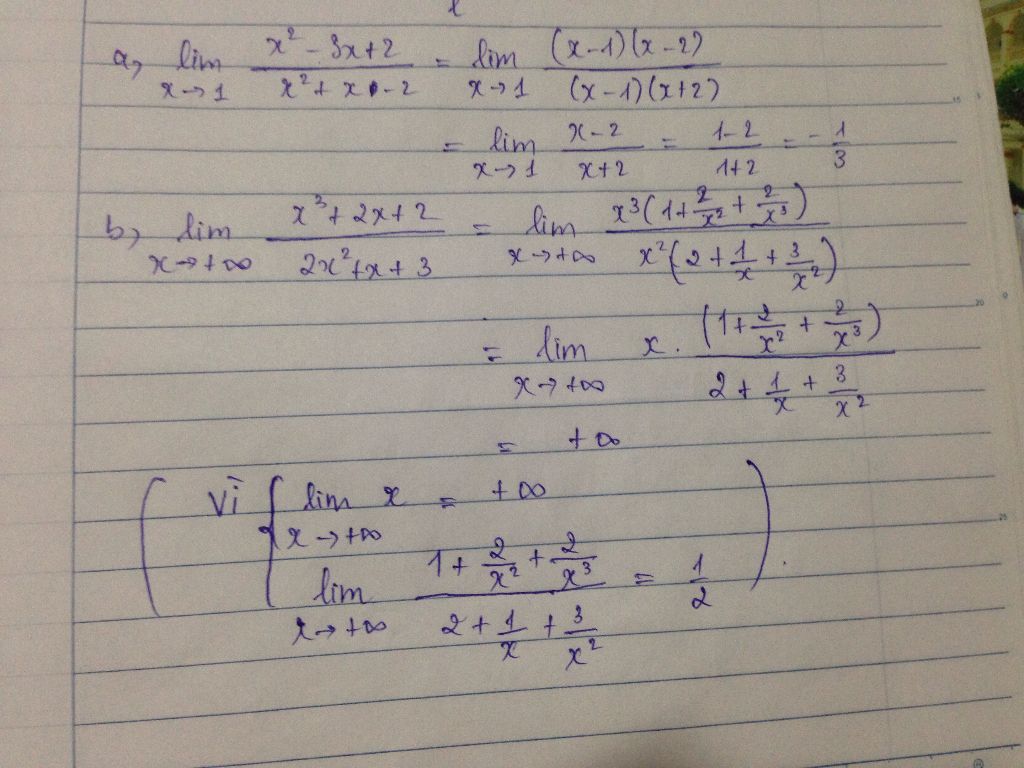 a, lim x→1 (x² - 3x + 2)/(x² + x - 2) = lim x→1 ((x-1)(x-2))/((x-1)(x+2))
= lim x→1 (x-2)/(x+2) = (1-2)/(1+2) = -1/3
b, lim x→+∞ (x³ + 2x + 2)/(2x² + x + 3) = lim x→+∞ (x³(1 + 2/x² + 2/x³))/(x²(2 + 1/x + 3/x²))
= lim x→+∞ x . ((1 + 2/x² + 2/x³))/(2 + 1/x + 3/x²)
= +∞
( Vì { lim x→+∞ x = +∞
lim x→+∞ (1 + 2/x² + 2/x³)/(2 + 1/x + 3/x²) = 1/2 ).